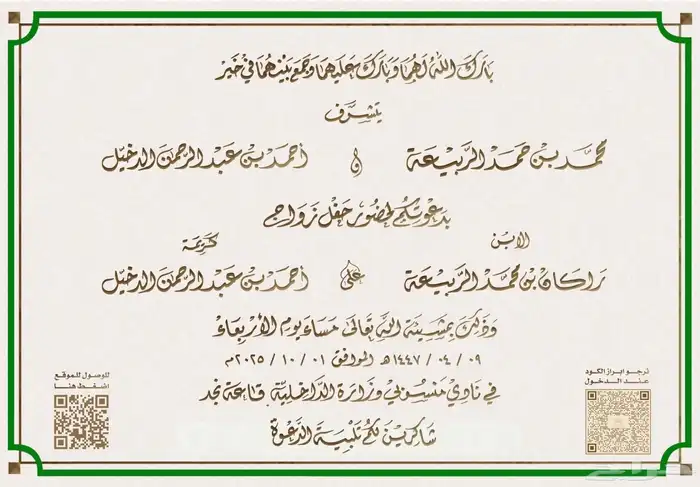 بارك الله لهما وبارك عليهما وجمع بينهما في خير
يتشرف
محمد بن حمد الربيعة و أحمد بن عبد الرحمن الدخيل
بدعوتكم لحضور حفل زواج
الابن كريمة
راكان بن محمد الربيعة على أحمد بن عبد الرحمن الدخيل
وذلك بمشيئة الله تعالى مساء يوم الأربعاء
٠٩ / ٠٤ / ١٤٤٧هـ الموافق ٠١ / ١٠ / ٢٠٢٥م
في نادي منسوبي وزارة الداخلية قاعة نجد
شاكرين لكم تلبية الدعوة
نرجو ابراز الكود
عند الدخول
للوصول للموقع
اضغط هنا
حراج